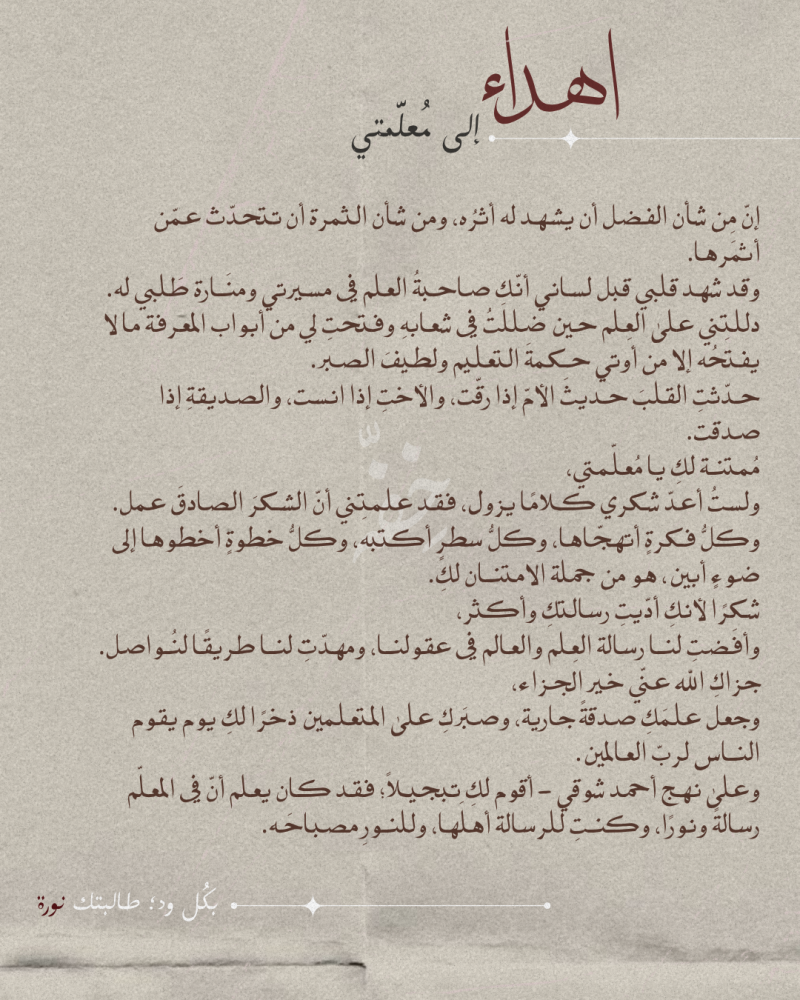 اهداء
إلى مُعلّمتي
إنّ مِن شأن الفضل أن يشهد له أثرُه، ومن شأن الثمرة أن تتحدّث عمّن
أثمَرها.
وقد شهد قلبي قبل لساني أنّكِ صاحبةُ العلم في مسيرتي ومنَارة طَلبي له.
دللتِني على العِلم حين ضللتُ في شعابهِ وفتحتِ لي من أبواب المعَرفة ما لا
يفتحُه إلا من أوتي حكمةَ التعليم ولطيفَ الصبر.
حدّثتِ القلبَ حديثَ الأمّ إذا رقّت، والأختِ إذا انست، والصديقةِ إذا
صدقت.
مُمتنة لكِ يا مُعلّمتي،
ولستُ أعدّ شكري كلامًا يزول، فقد علمتِني أنّ الشكرَ الصادقَ عمل.
وكلُّ فكرةٍ أتهجّاها، وكلُّ سطرٍ أكتبه، وكلُّ خطوةٍ أخطوها إلى
ضوءٍ أبين، هو من جملة الامتنان لكِ.
شكرًا لأنكِ أدّيتِ رسالتكِ وأكثر،
وأفَضتِ لنا رسالة العِلم والعالم في عقولنا، ومهدّتِ لنا طريقًا لنُواصل.
جزاكِ الله عنّي خير الجزاء،
وجعل علمَكِ صدقةً جارية، وصبَركِ على المتعلمين ذخرًا لكِ يوم يقوم
الناس لربّ العالمين.
وعلى نهج أحمد شوقي – أقوم لكِ تبجيلاً؛ فقد كان يعلم أنّ في المعلّم
رسالةً ونورًا، وكنتِ للرسالة أهلها، وللنورِ مصباحَه.
بكُل ود؛ طالبتك نورة